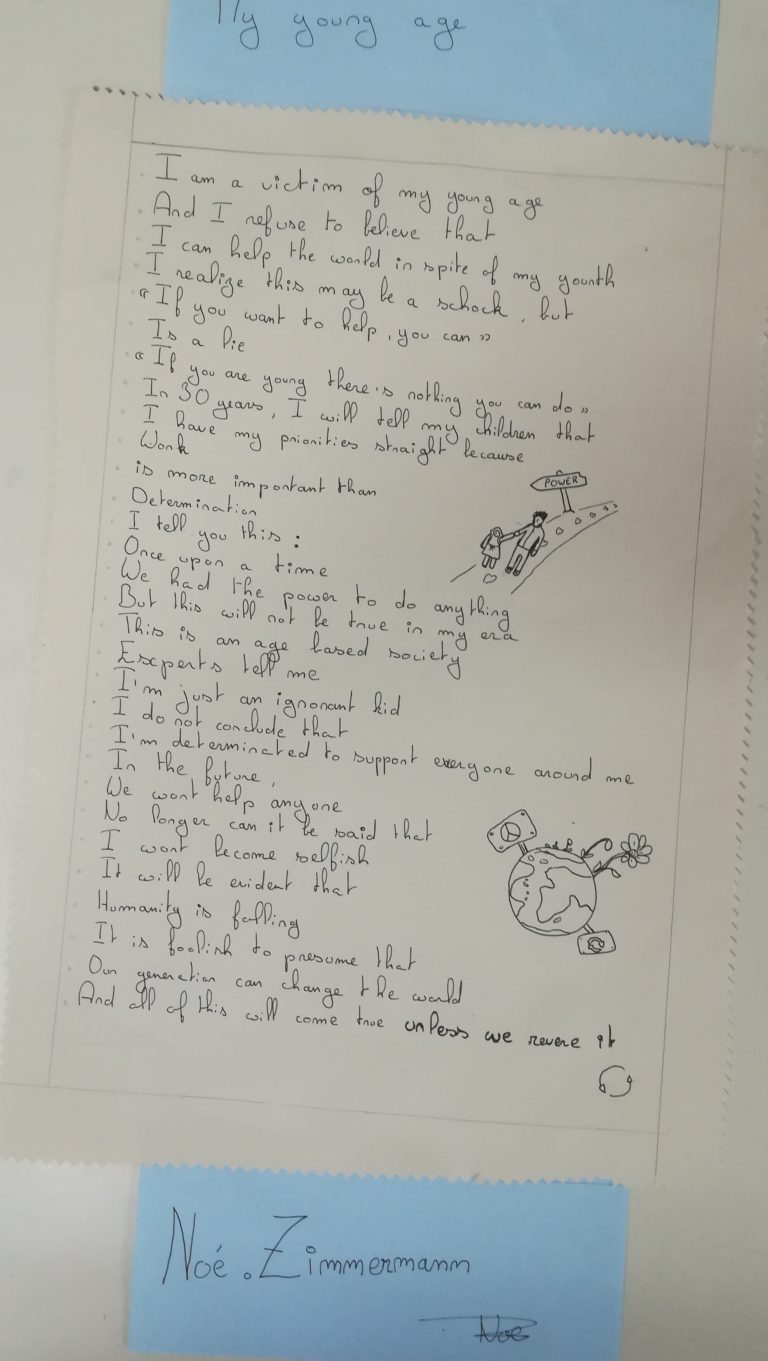 My young age
I am a victim of my young age
And I refuse to believe that
I can help the world in spite of my younth
I realize this may be a schock, but
« If you want to help, you can »
Is a lie
« If you are young there's nothing you can do »
In 30 years, I will tell my children that
I have my priorities straight because
Work
is more important than
Determination
I tell you this :
Once upon a time
We had the power to do anything
But this will not be true in my era
This is an age based society
Experts tell me
I'm just an ignorant kid
I do not conclude that
I'm determinated to support everyone around me
In the future,
We wont help anyone
No longer can it be said that
I wont become selfish
It will be evident that
Humanity is falling
It is foolish to presume that
Our generation can change the world
And all of this will come true unless we revere it
POWER
Noé.Zimmermann
Noé